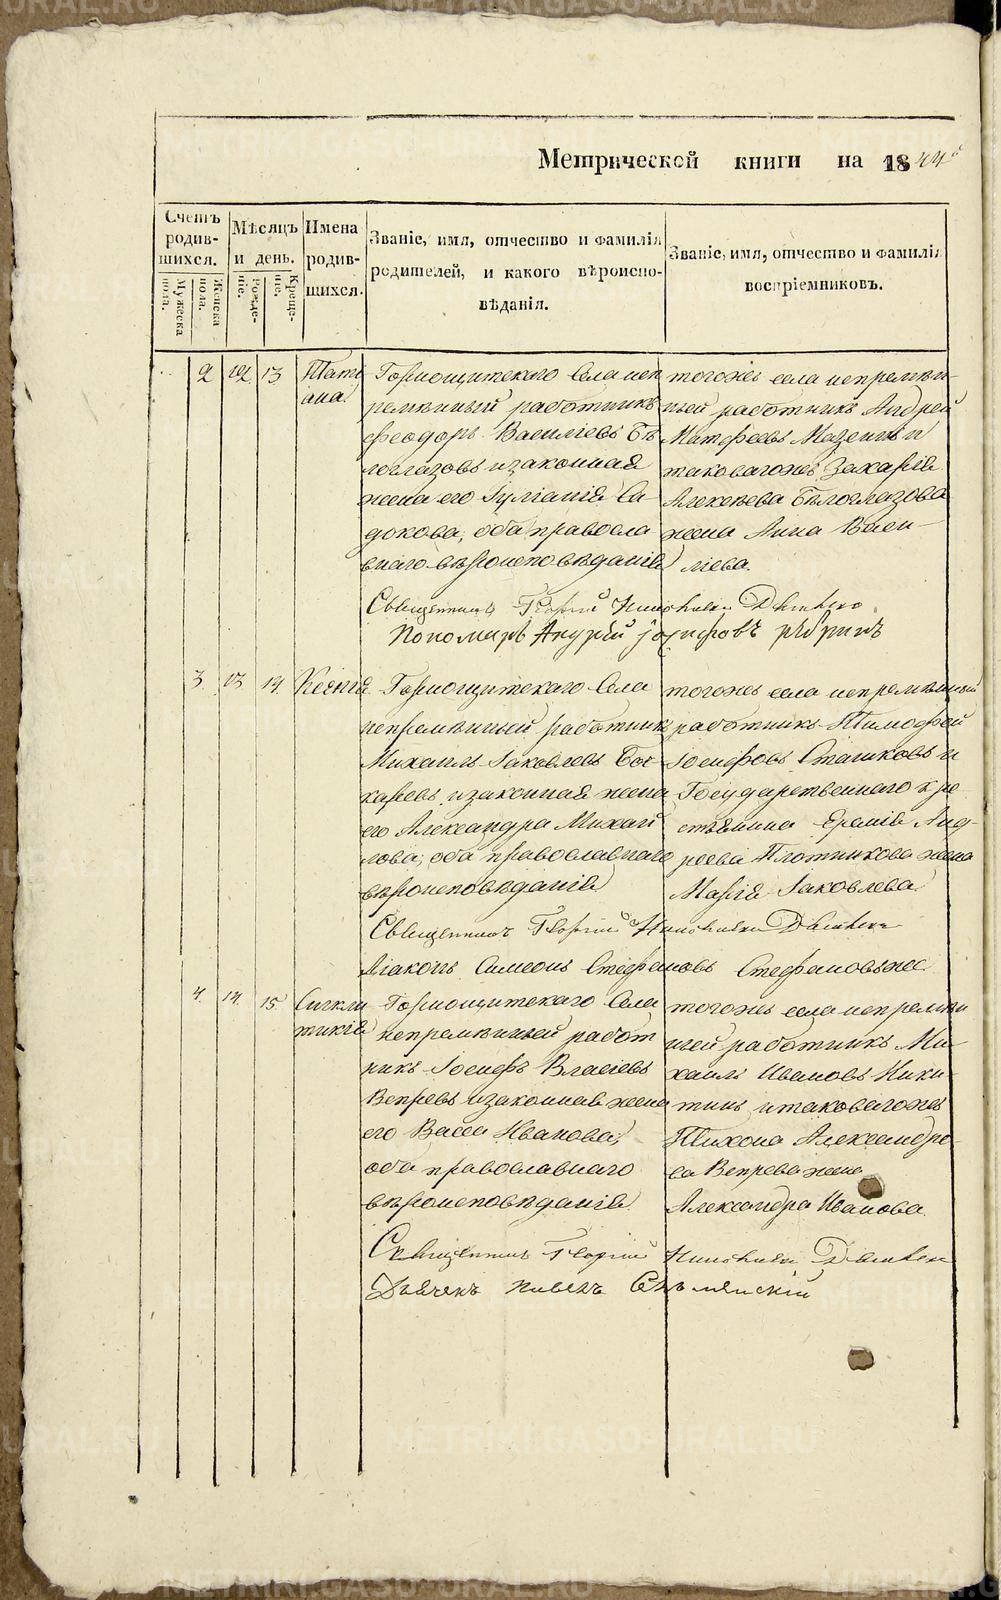 Метрической книги на 1844й
Счетъ родив-шихся.
Мужеска пола.
Женска пола.
Мѣсяцъ и день.
Рожде-ніе.
Креще-ніе.
Имена родив-шихся.
Званіе, имя, отчество и фамилія
родителей, и какого вѣроиспо-
вѣданія.
Званіе, имя, отчество и фамилія
воспріемниковъ.
2 12 13 Тати
ана
Горнощитскаго Села неп
ремѣнный работникъ
Феодоръ Василіевъ Бѣ
логлазовъ и законная
жена его Іуліанія Са
докова, оба правосла
внаго вѣроисповѣданія
тогожъ села непремѣн-
ный работникъ Андрей
Матфеевъ Мазеинъ и
таковагожъ Захарія
Алексѣева Бѣлоглазова
жена Анна Васи-
ліева.
Священникъ Георгій
Пономарь Андрей Іосифовъ
3. 13 14. Ксенія
Горнощитскаго Села
непремѣнный работник
Михаилъ Іаковлевъ Бок
каревъ и законная жена
его Александра Михай
лова, оба православнаго
вѣроисповѣданія
тогожъ села непремѣнный
работникъ Тимофей
Іосифовъ Сташковъ и
Государственнаго кре
стьянина Еремія Анд-
реева Плотникова жена
Марія Іаковлева
Священникъ Георгій
Діаконъ Симеонъ Стефановъ
4. 14. 15. Сигкли
тикія
Горнощитскаго Села
непремѣнный работ
никъ Іосифъ Власіевъ
Вепревъ и законная жена
его Васса Иванова,
оба православнаго
вѣроисповѣданія.
тогожъ села непремѣн
ный работникъ Ми-
хаилъ Ивановъ Ники-
тинъ и таковагожъ
Тихона Александро-
ва Вепрева жена
Александра Иванова.
Священникъ Георгій
Дьячекъ Павелъ
METRIKI.GASO-URAL.RU